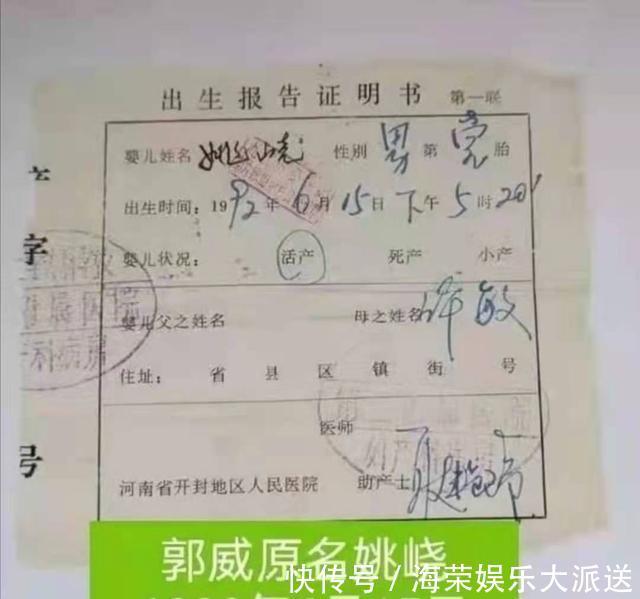 出生报告证明书 第一联
婴儿姓名 性别 男 第 壹 胎
出生时间：1992年6月15日下午5时20'
字
婴儿状况： 活产 死产 小产
属医院
科病房
婴儿父之姓名 母之姓名 许敏
住址： 省 县 区 镇 街 号
医师
号
河南省开封地区人民医院 助产士
郭威原名姚峣
快传号／海荣娱乐大派送